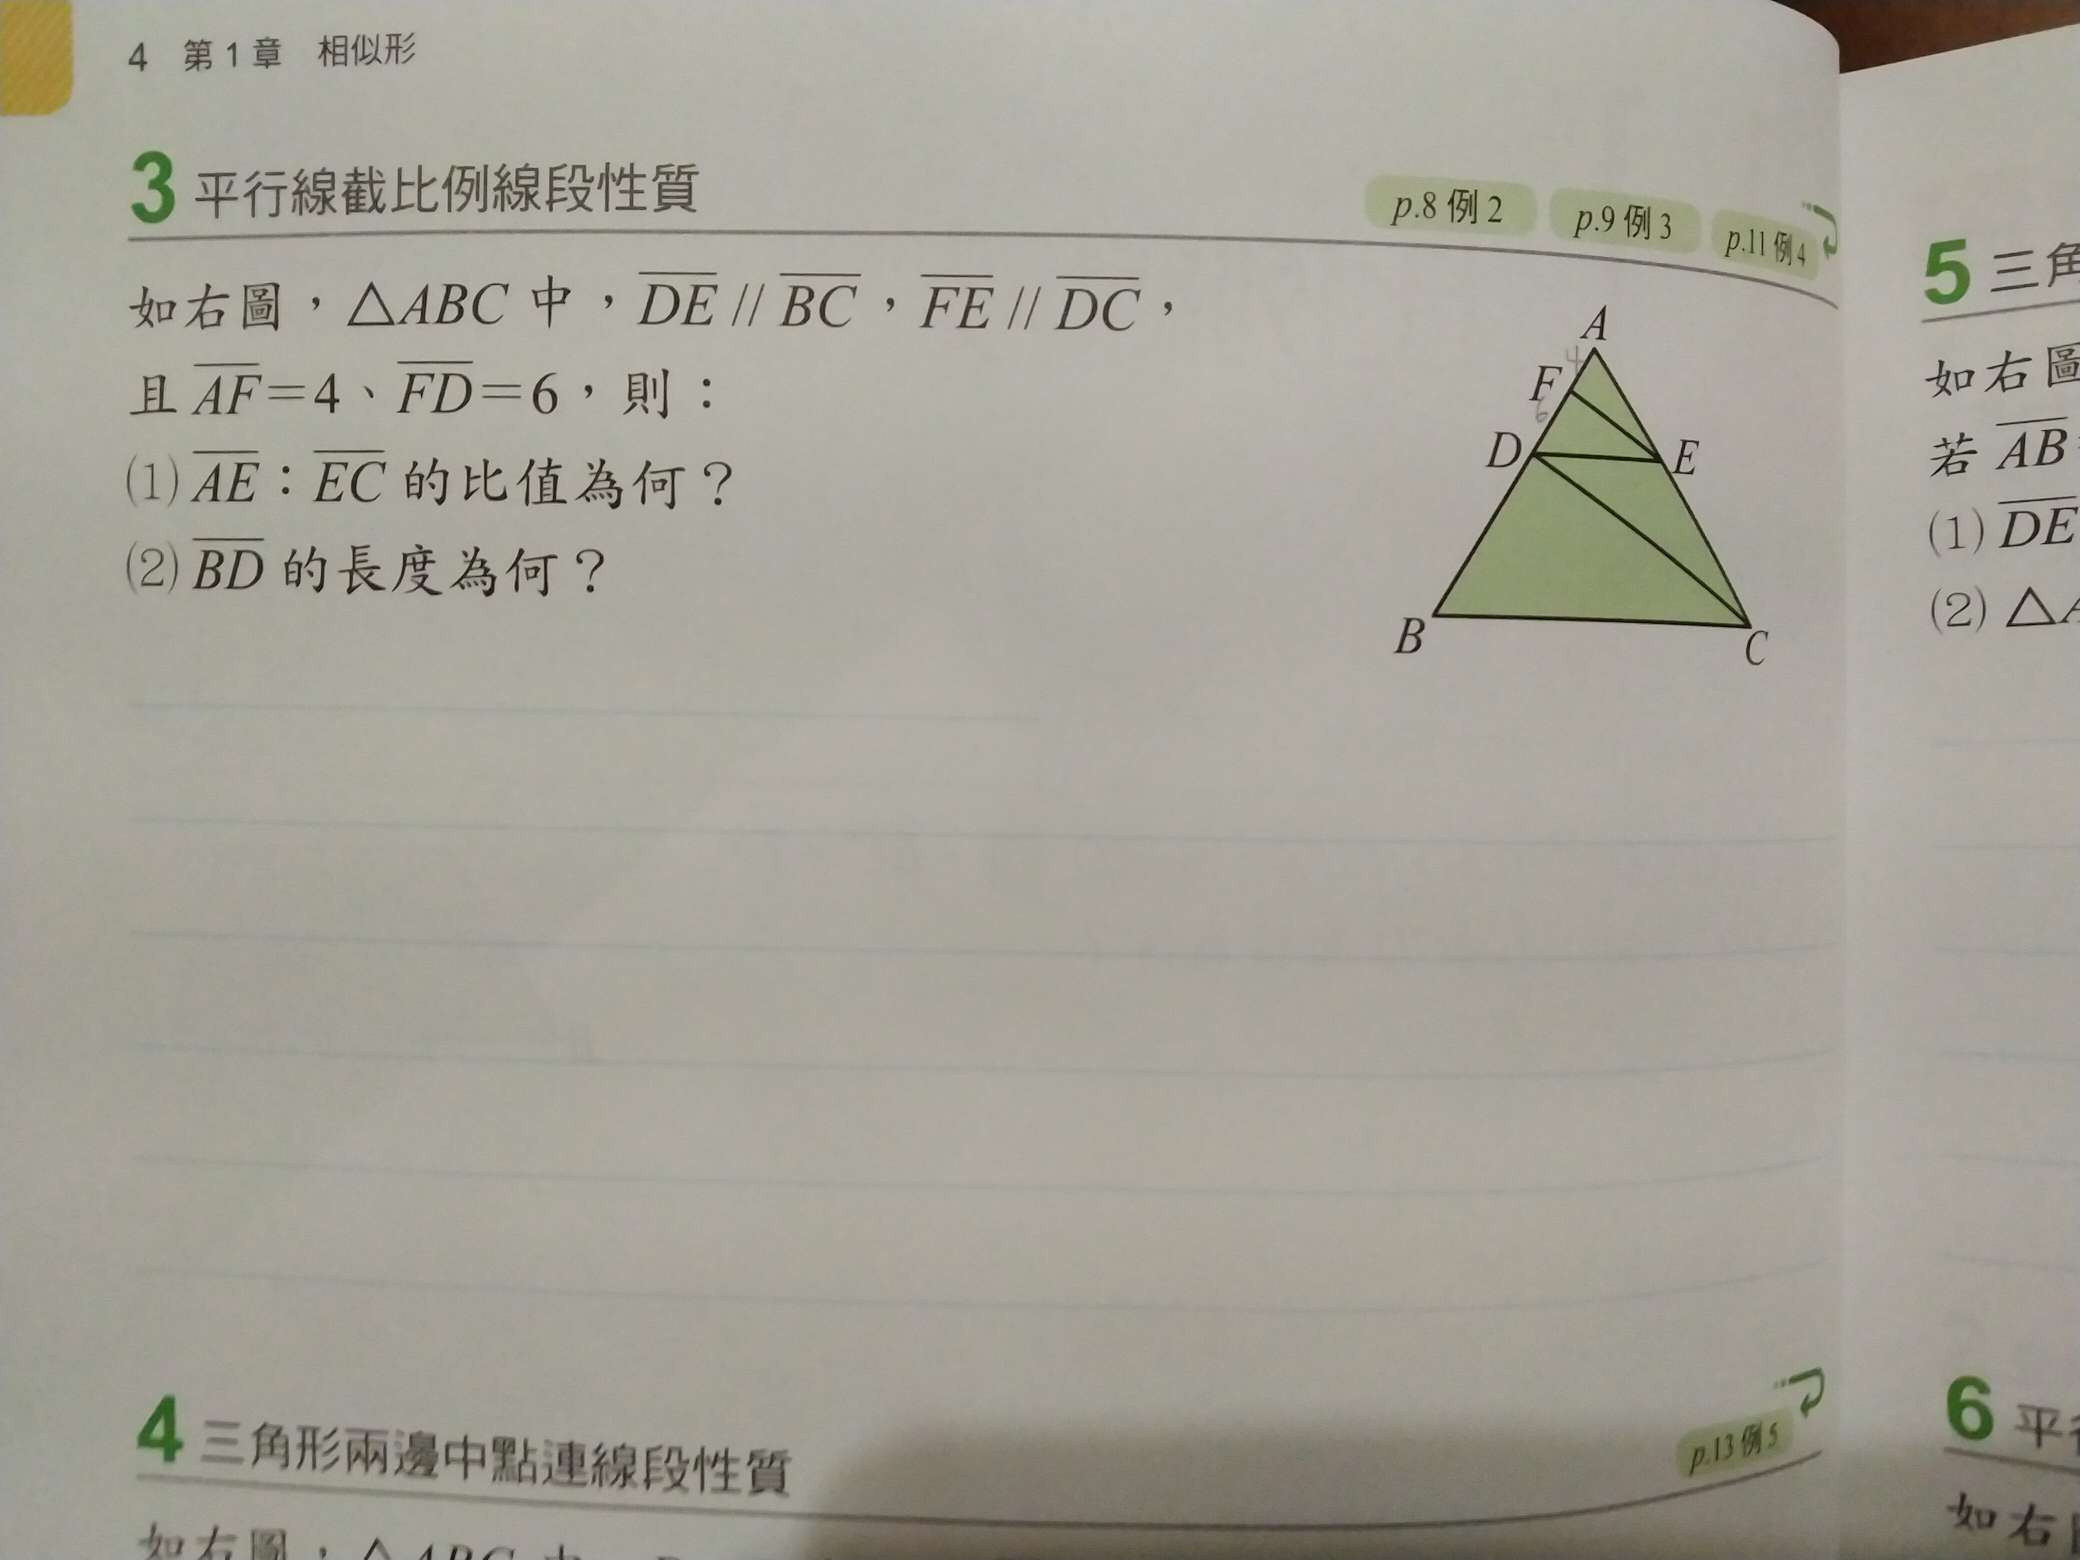 4 第1章 相似形
3 平行線截比例線段性質
p.8 例 2 p.9 例 3 p.11 例 4
如右圖，△ABC 中，DE // BC，FE // DC，
且 AF=4、FD=6，則：
(1) AE：EC 的比值為何？
(2) BD 的長度為何？
A
4
F
6
D
E
B
C
4 三角形兩邊中點連線段性質
p.13 例 5
如右圖，△ABC 中，
5 三角
如右圖
若 AB
(1) DE
(2) △A
6 平行
如右